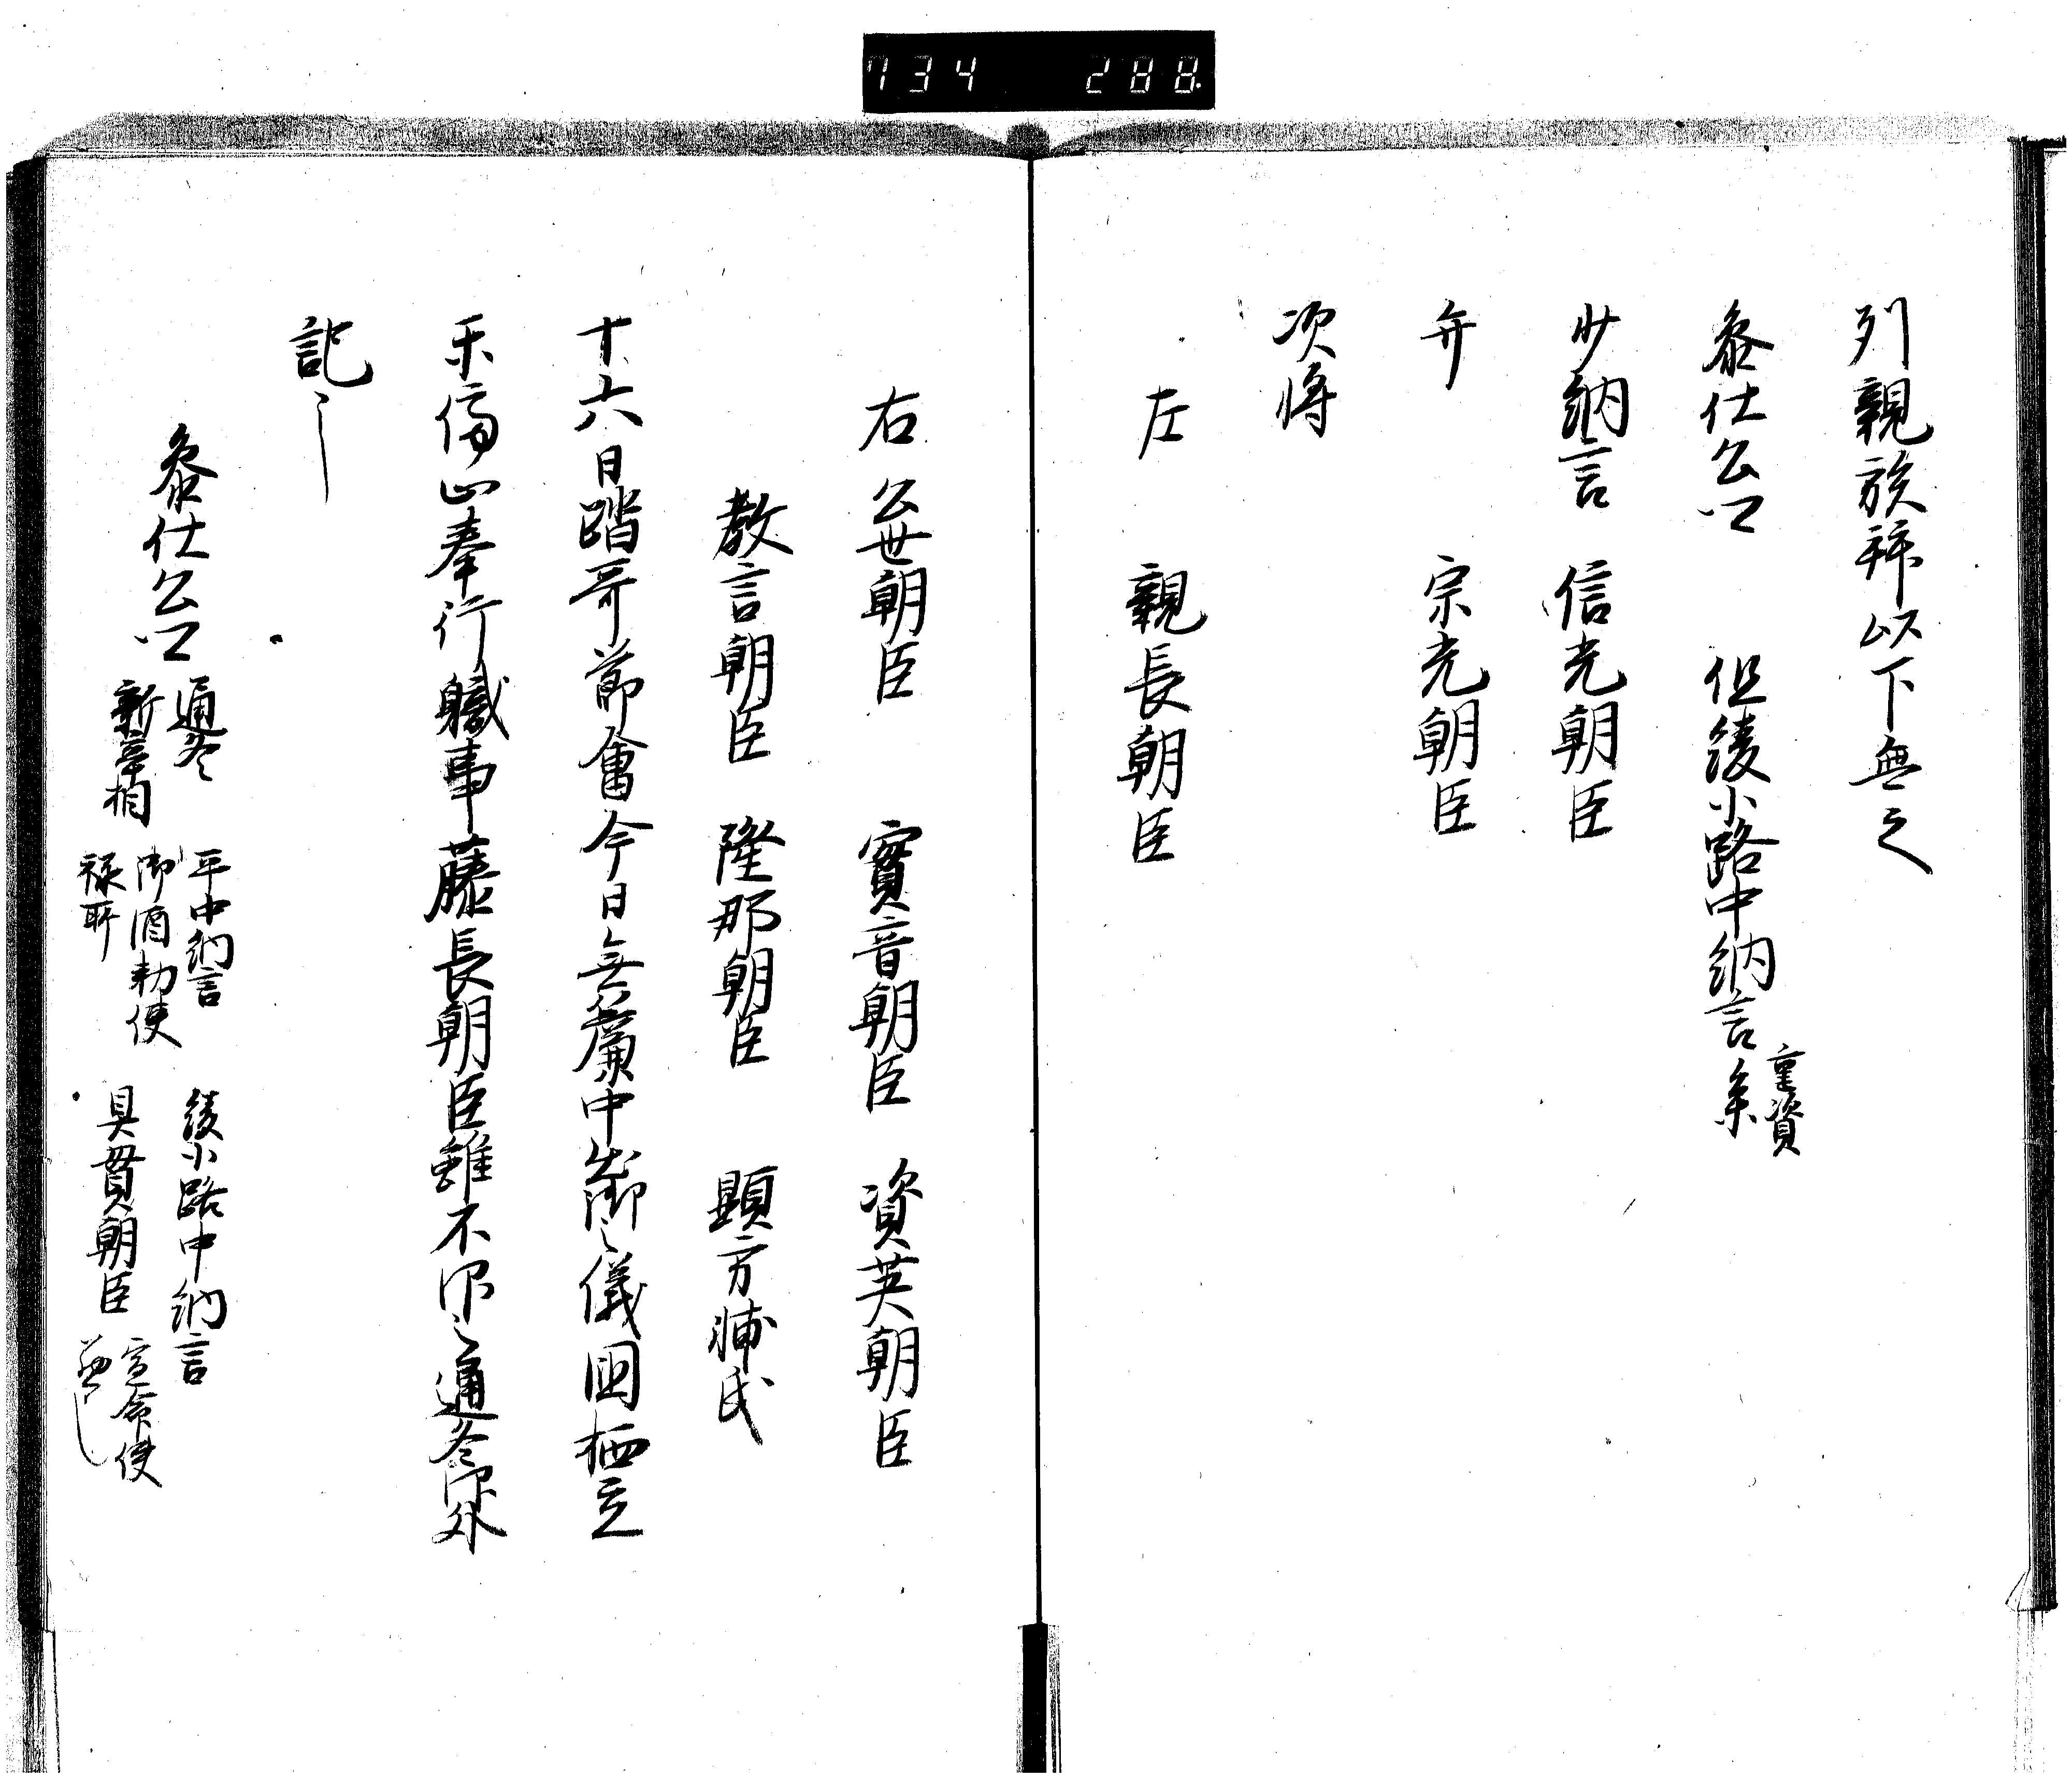 734 288
列親族拜以下無之
参仕公卿 但綾小路中納言参 重資
少納言 信光朝臣
弁 宗光朝臣
次将
左 親長朝臣
右 公世朝臣 實音朝臣 資英朝臣
教言朝臣 隆那朝臣 顕方
十六日踏哥節會今日無簾中出御之儀國栖立
楽停止奉行職事藤長朝臣雖不 之通冬
記之
参仕公卿 通冬 平中納言 綾小路中納言
新宰相 御酒勅使 禄所 具貫朝臣 宣命使